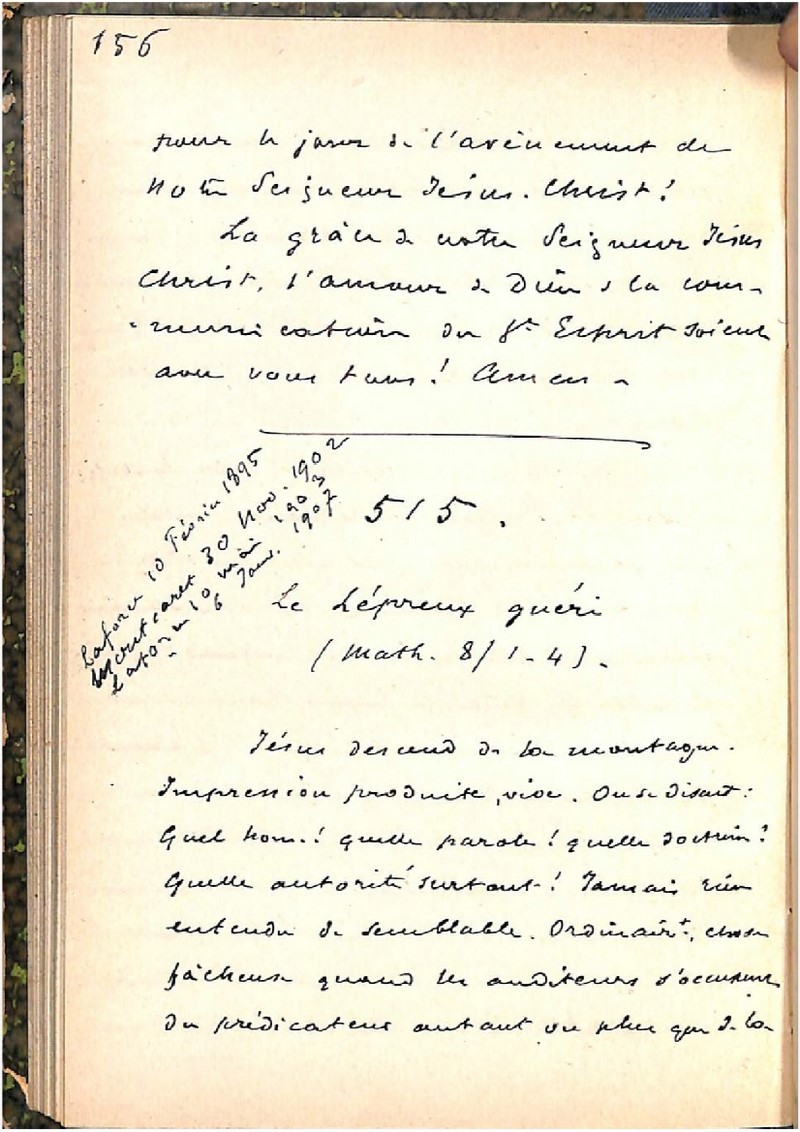 156
pour le jour de l'avènement de
Notre Seigneur Jésus-Christ!
La grâce de notre Seigneur Jésus
Christ, l'amour de Dieu & la com-
-munication du St Esprit soient
avec vous tous! Amen
Lafon 10 Février 1895
30 Nov. 1902
10 mai 1903
6 Janv. 1907
515.
Le Lépreux guéri
(Math. 8/1-4).
Jésus descend de la montagne.
Impression produite, vive. On se disait:
Quel hom.! quelle parole! quelle doctrine!
Quelle autorité surtout! Jamais rien
entendu de semblable. Ordinairt, chose
fâcheuse quand les auditeurs s'occupent
du prédicateur autant ou plus que de la